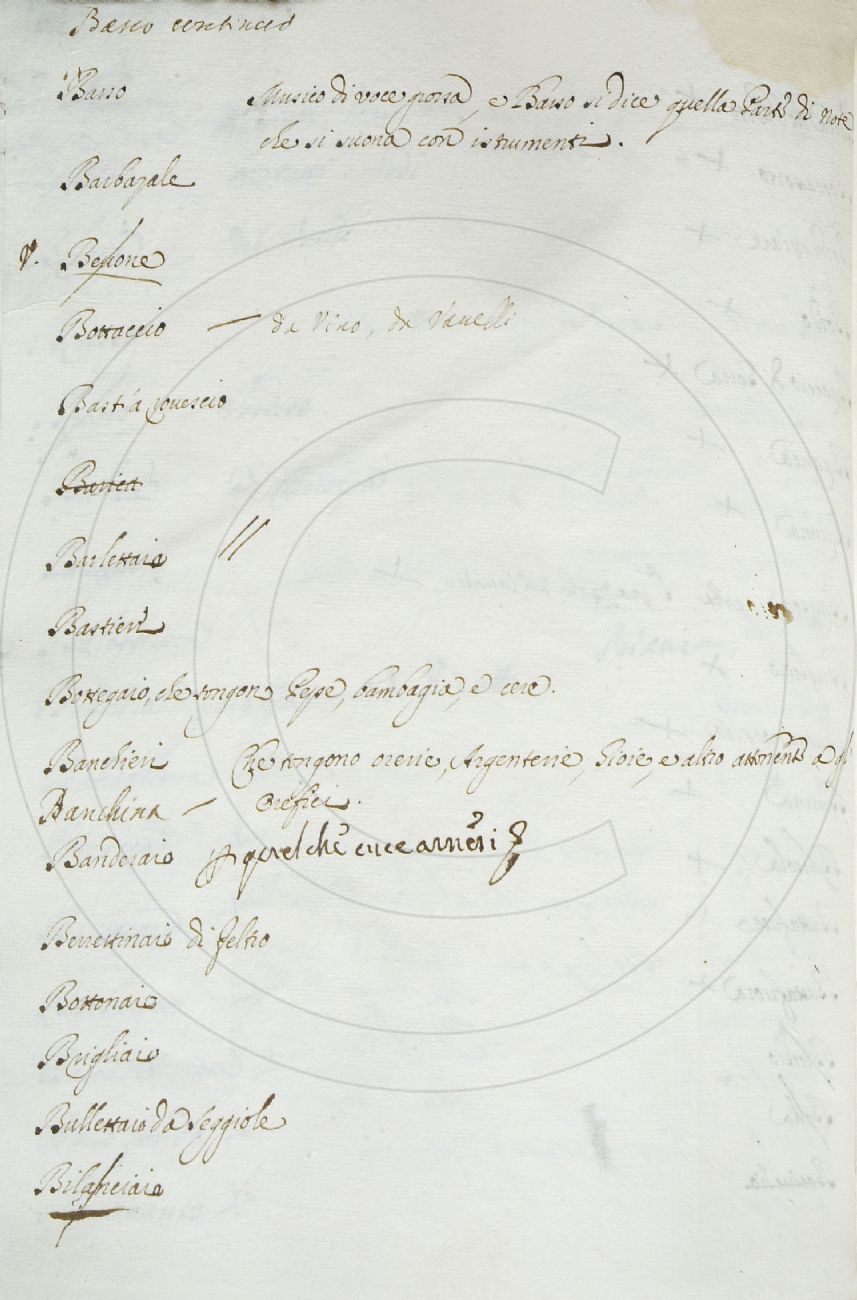 Basso continuo
Basso Musico di voce grossa, e Basso si dice quella Parte di Note
che si suona con istrumenti.
Barbazale
V. Bessone
Bottaccio — da Vino, da Vccelli
Bast'a rovescio
Barlettaio //
Bastieri
Bottegaio, che tengon Pepe, bambagia, e cere.
Banchieri Che tengono orerie, Argenterie, Gioie, e altro attenente a gl'
Orefici.
Banchina —
Banderaio
Berrettinaio di feltro
Bottonaio
Brigliaio
Bullettaio da Seggiole
Bilanciaio